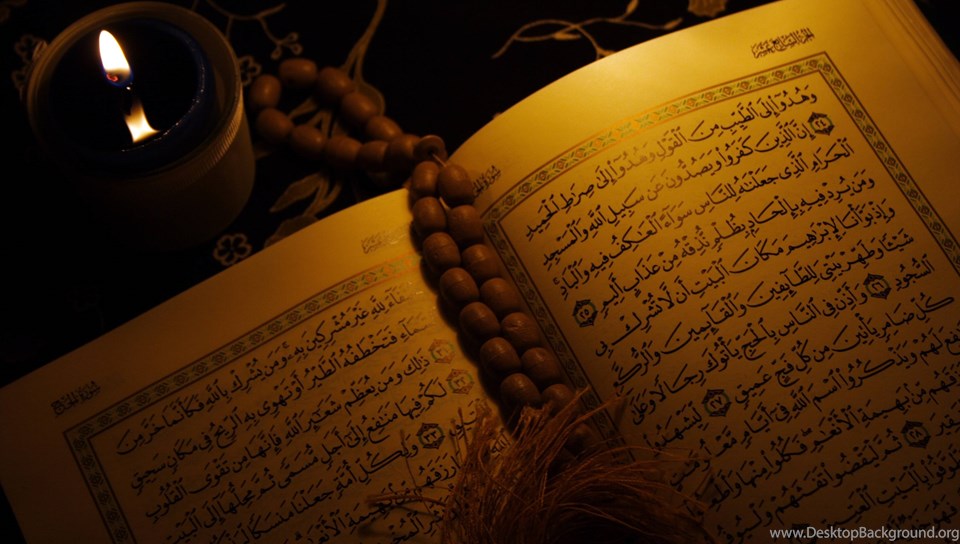 الجزء السابع عشر
وَهُدُوٓا۟ إِلَى ٱلطَّيِّبِ مِنَ ٱلْقَوْلِ وَهُدُوٓا۟ إِلَىٰ صِرَٰطِ ٱلْحَمِيدِ
٢٤ إِنَّ ٱلَّذِينَ كَفَرُوا۟ وَيَصُدُّونَ عَن سَبِيلِ ٱللَّهِ وَٱلْمَسْجِدِ
ٱلْحَرَامِ ٱلَّذِى جَعَلْنَٰهُ لِلنَّاسِ سَوَآءً ٱلْعَٰكِفُ فِيهِ وَٱلْبَادِ
وَمَن يُرِدْ فِيهِ بِإِلْحَادٍۭ بِظُلْمٍ نُّذِقْهُ مِنْ عَذَابٍ أَلِيمٍ ٢٥
وَإِذْ بَوَّأْنَا لِإِبْرَٰهِيمَ مَكَانَ ٱلْبَيْتِ أَن لَّا تُشْرِكْ بِى
شَيْـًٔا وَطَهِّرْ بَيْتِىَ لِلطَّآئِفِينَ وَٱلْقَآئِمِينَ وَٱلرُّكَّعِ
ٱلسُّجُودِ ٢٦ وَأَذِّن فِى ٱلنَّاسِ بِٱلْحَجِّ يَأْتُوكَ رِجَالًا وَعَلَىٰ
كُلِّ ضَامِرٍ يَأْتِينَ مِن كُلِّ فَجٍّ عَمِيقٍ ٢٧ لِّيَشْهَدُوا۟
لَهُمْ وَيَذْكُرُوا۟ ٱسْمَ ٱللَّهِ فِىٓ أَيَّامٍ
مِّنۢ بَهِيمَةِ ٱلْأَنْعَٰمِ فَكُلُوا۟ مِنْهَا
٢٨ ثُمَّ لْيَقْضُوا۟ تَفَثَهُمْ
بِٱلْبَيْتِ
سورة الحج
لِلَّهِ غَيْرَ مُشْرِكِينَ بِهِۦ وَمَن يُشْرِكْ بِٱللَّهِ فَكَأَنَّمَا خَرَّ مِنَ
فَتَخْطَفُهُ ٱلطَّيْرُ أَوْ تَهْوِى بِهِ ٱلرِّيحُ فِى مَكَانٍ سَحِيقٍ
٣١ ذَٰلِكَ وَمَن يُعَظِّمْ شَعَٰٓئِرَ ٱللَّهِ فَإِنَّهَا مِن تَقْوَى ٱلْقُلُوبِ
٣٢ لَكُمْ فِيهَا مَنَٰفِعُ إِلَىٰٓ أَجَلٍ مُّسَمًّى ثُمَّ مَحِلُّهَآ إِلَى ٱلْبَيْتِ
٣٣ وَلِكُلِّ أُمَّةٍ جَعَلْنَا مَنسَكًا
www.DesktopBackground.org